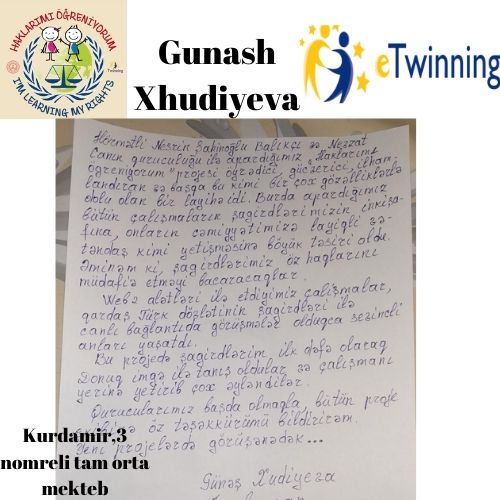 HAKLARIMI ÖĞRENİYORUM
I'M LEARNING MY RIGHTS
Gunash
Xhudiyeva
eTwinning
Hörmətli Nesrin Şahinoğlu Balıkçı və Nezzat
Canın quruculuğu ilə apardığımız "Haklarımı
öğreniyorum" projesi öyrədici, güczerici, ilham-
landıran və başqa bu kimi bir çox gözəlliklərlə
dolu olan bir layihə idi. Burda apardığımız
bütün çalışmaların şagirdlərimizin inkişa-
fına, onların cəmiyyətimizə layiqli və-
təndaş kimi yetişməsinə böyük təsiri oldu.
Əminəm ki, şagirdlərimiz öz haqlarını
müdafiə etməyi bacaracaqlar.
Web2 alətləri ilə etdiyimiz çalışmalar,
qardaş Türk dövlətinin şagirdləri ilə
canlı bağlantıda görüşmələr olduqca sevincli
anları yaşatdı.
Bu projedə şagirdlərim, ilk dəfə olaraq
Donuq imgə ilə tanış oldular və çalışmanı
yerinə yetirib çox əyləndilər.
Qurucularımız başda olmaqla, bütün proje
öz təşəkkürümü bildirirəm.
Yeni projelərdə görüşənədək...
Günəş Xudiyeva
Kurdamir,3
nomreli tam orta
mekteb